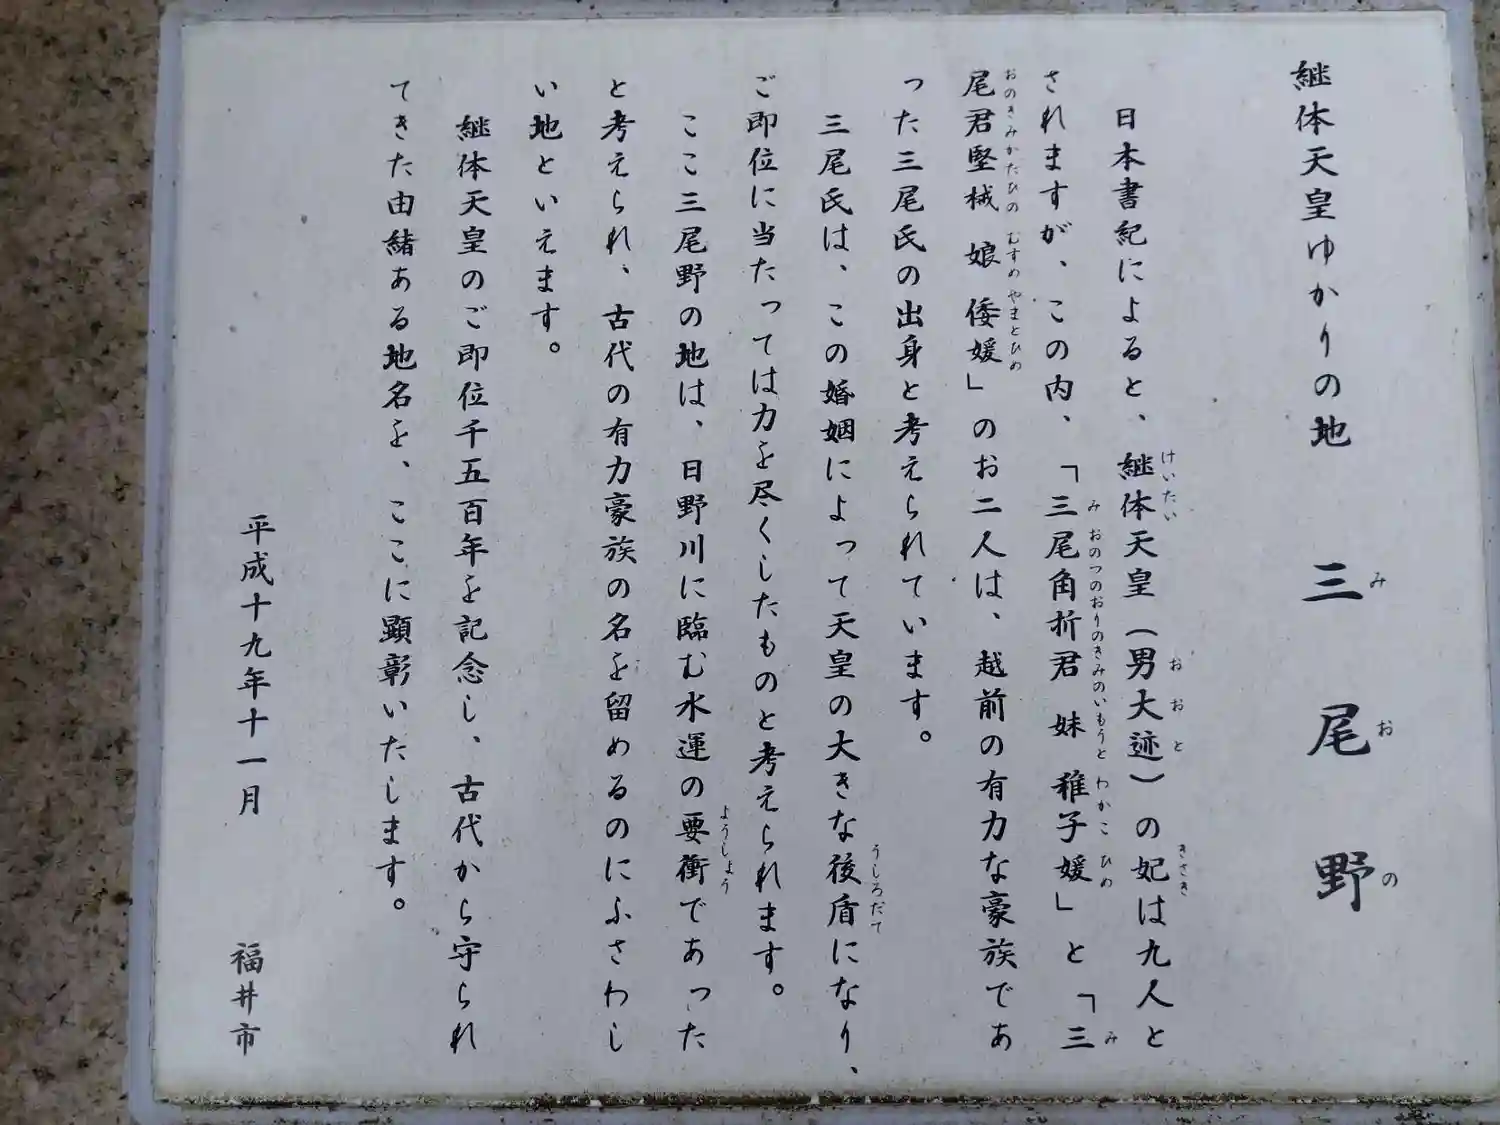 継体天皇ゆかりの地　三尾野
み　お　の
日本書紀によると、継体天皇（男大迹）の妃は九人と
けいたい　おおと　きさき
されますが、この内、「三尾角折君　妹　稚子媛」と「三
み　おのつのおりのきみのいもうと　わかこ　ひめ　み
尾君堅械　娘　倭媛」のお二人は、越前の有力な豪族であ
おのきみかたひの　むすめ　やまとひめ
った三尾氏の出身と考えられています。
三尾氏は、この婚姻によって天皇の大きな後盾になり、
うしろだて
ご即位に当たっては力を尽くしたものと考えられます。
ここ三尾野の地は、日野川に臨む水運の要衝であった
ようしょう
と考えられ、古代の有力豪族の名を留めるのにふさわし
い地といえます。
継体天皇のご即位千五百年を記念し、古代から守られ
てきた由緒ある地名を、ここに顕彰いたします。
平成十九年十一月　福井市